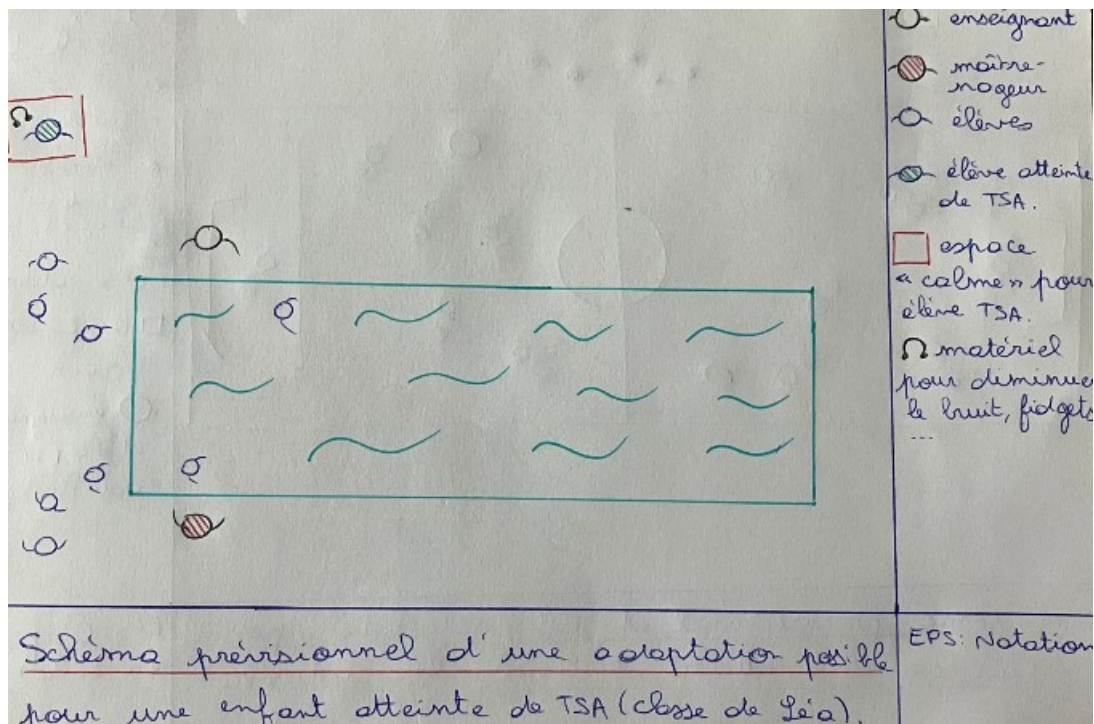 enseignant
maître-
nageur
élèves
élève atteinte
de TSA.
espace
« calme » pour
élève TSA.
Ω matériel
pour diminuer
le bruit, fidgets
---
Schéma prévisionnel d'une adaptation possible
pour une enfant atteinte de TSA (classe de Léa).
EPS: Natation